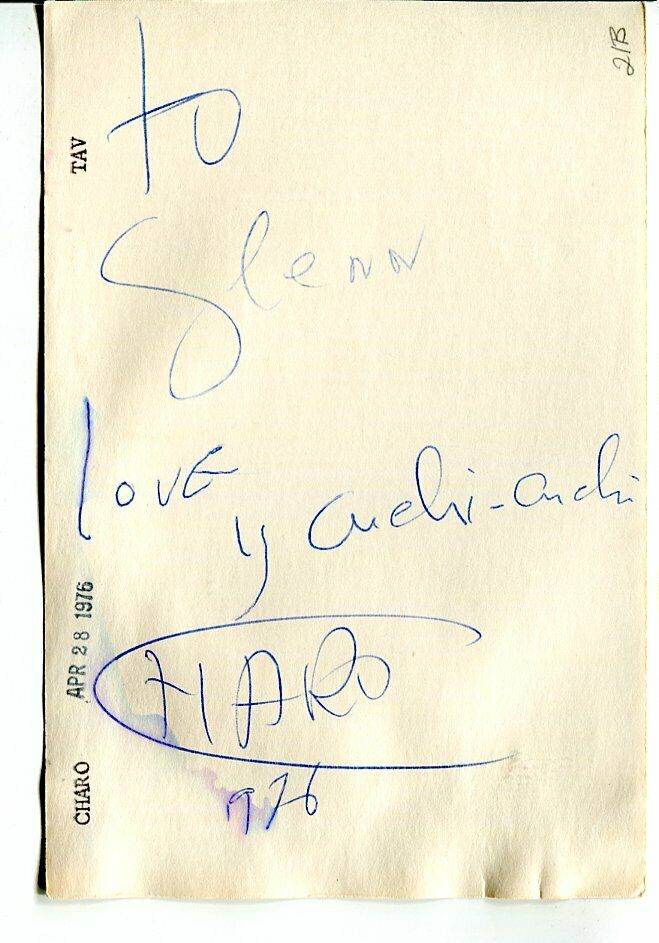 To
Glenn
love
y cuchi-cuchi
CHARO
1976
TAV
APR 28 1976
CHARO
21B